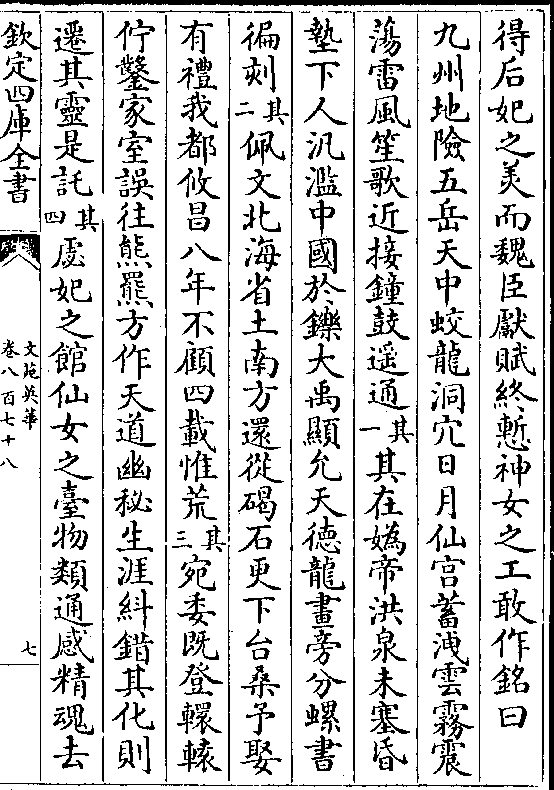 得后妃之美而魏臣獻賦終慙神女之工敢作銘曰
九州地險五岳天中蛟龍洞穴日月仙宫蓄洩雲霧震
蕩雷風笙歌近接鐘鼓遥通其一其在媯帝洪泉未塞昏
墊下人汎濫中國於鑠大禹顯允天德龍畫旁分螺書
徧刻其二佩文北海省土南方還從碣石更下台桑予娶
有禮我都攸昌八年不顧四載惟荒其三宛委既登轘轅
佇鑿家室誤往熊羆方作天道幽秘生涯糾錯其化則
遷其靈是託其四虙妃之館仙女之臺物類通感精魂去
欽定四庫全書
文苑英華
卷八百七十八
七